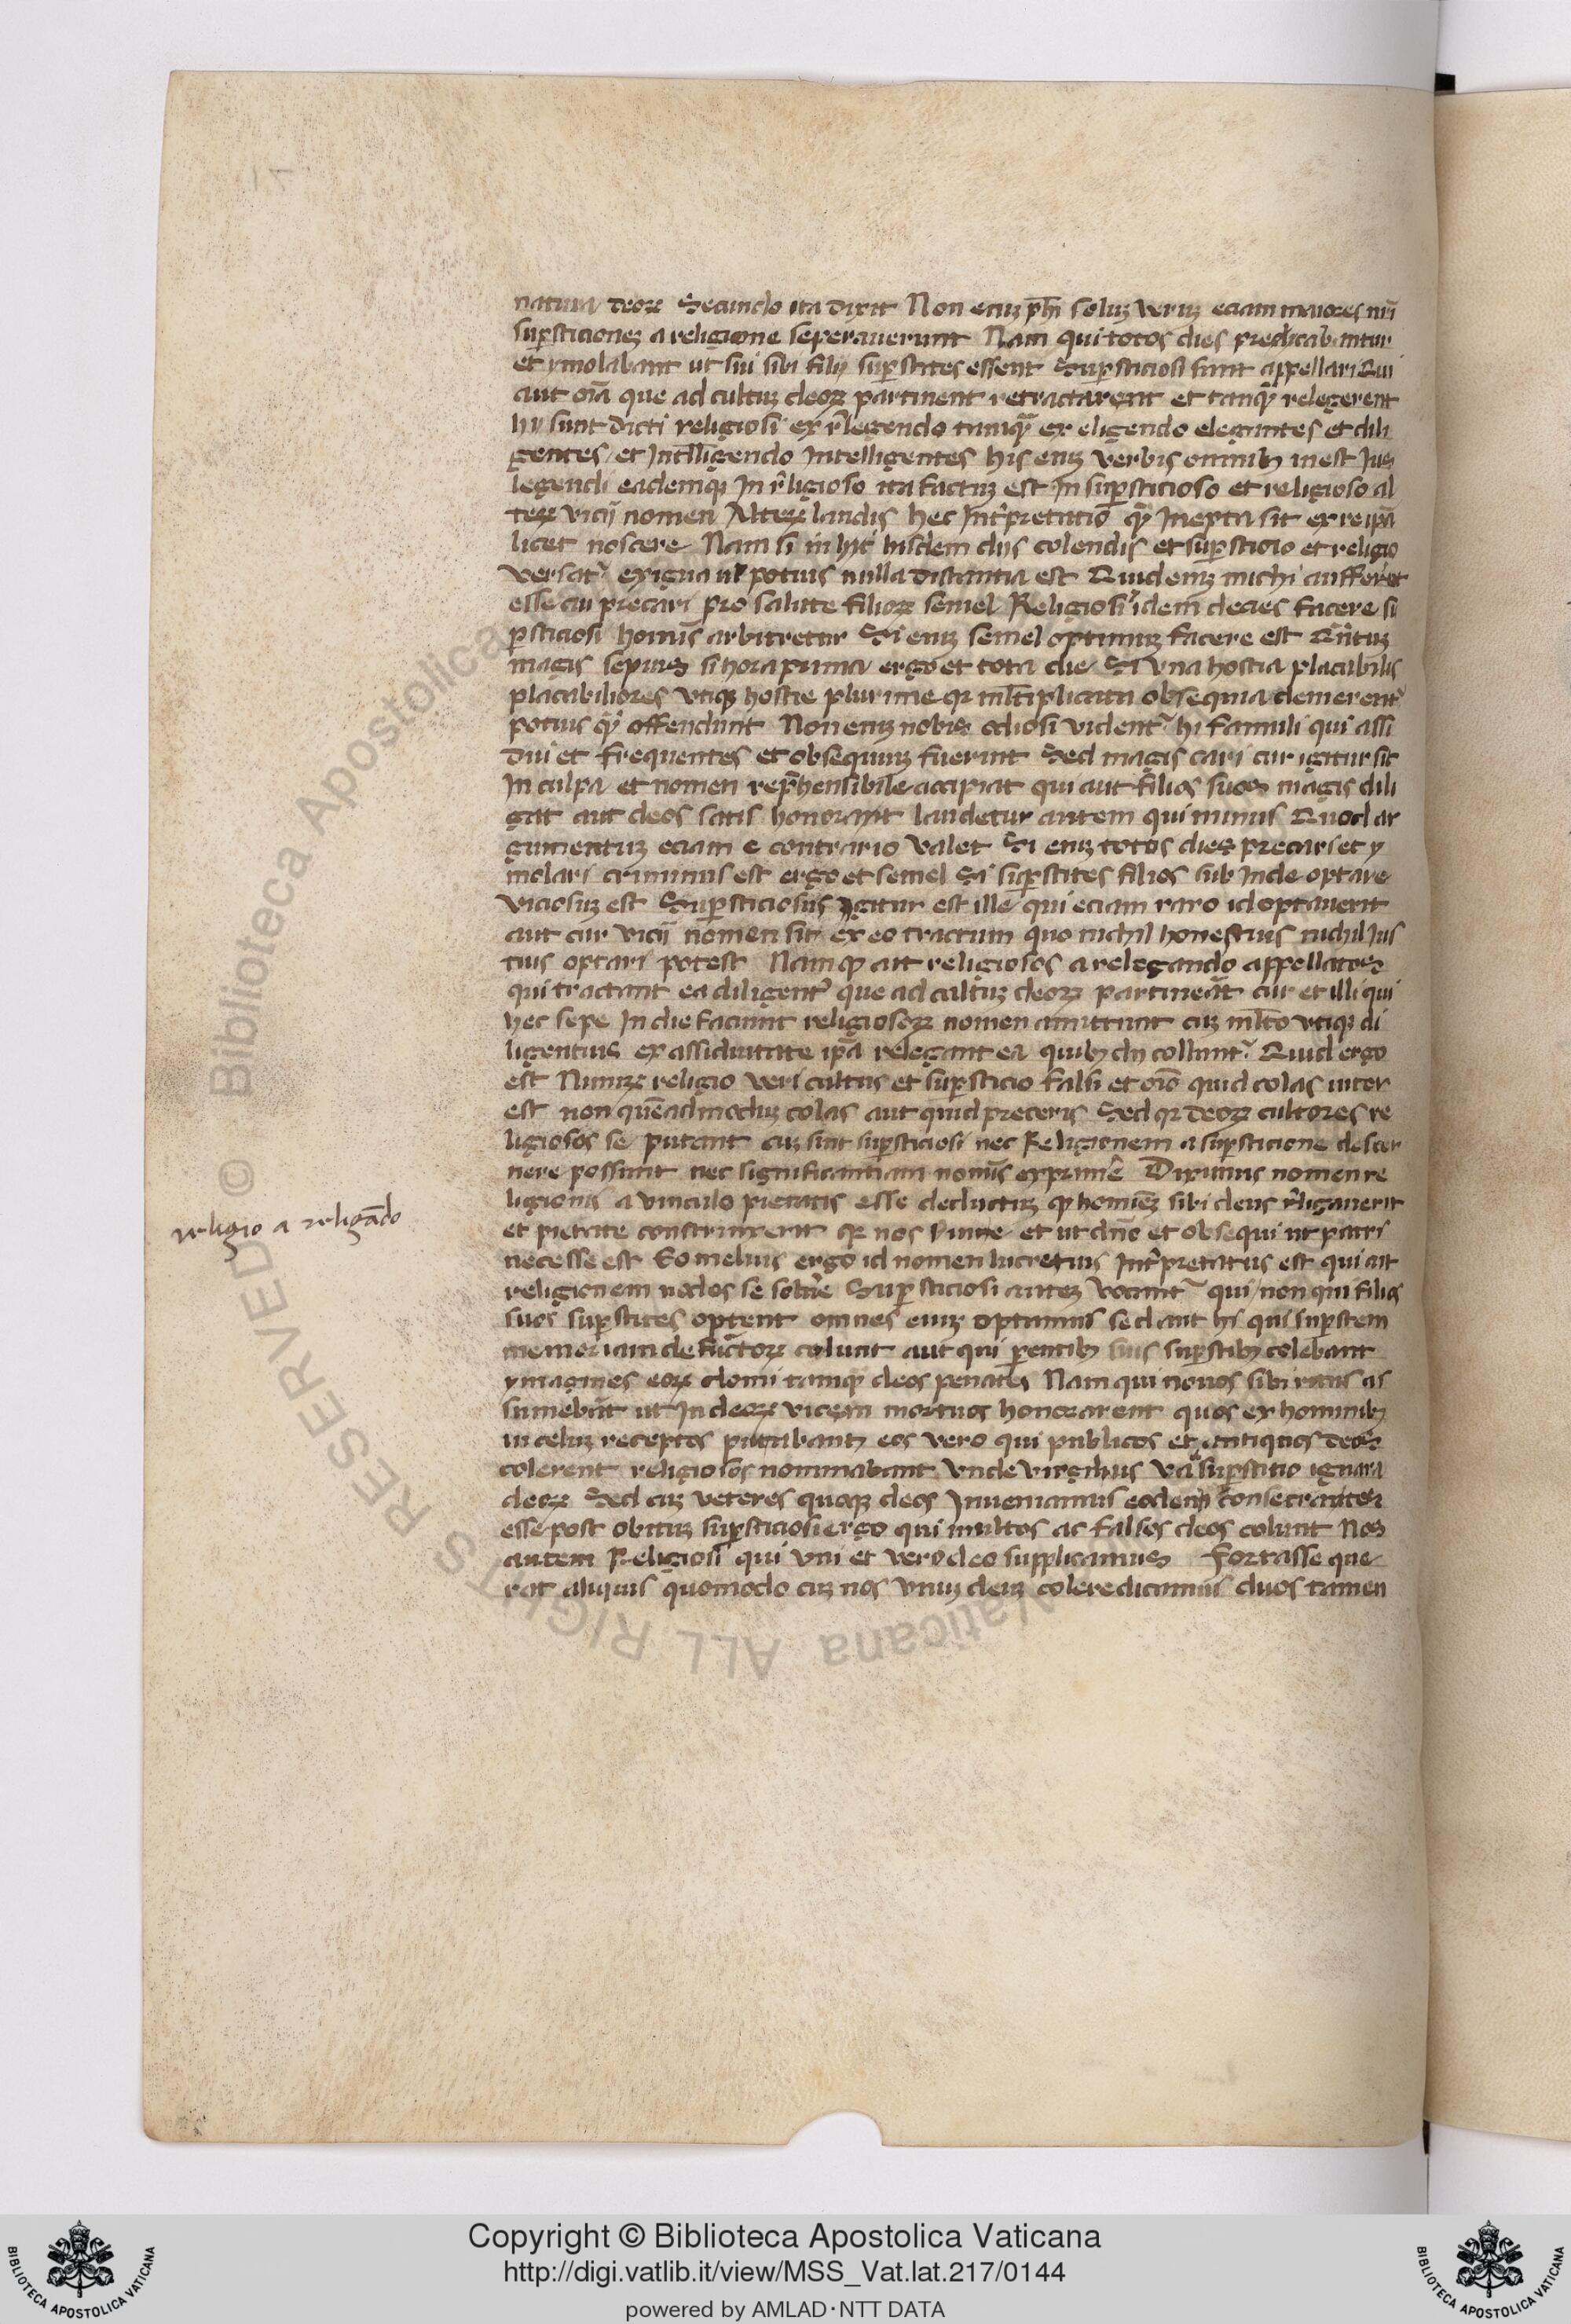 natura deoꝝ Secundo ita dixit Non eniꝫ ph̄i soluꝫ veruꝫ eciam maiores nr̄i
suꝑsticioneꝫ a religione seperauerunt Nam qui totos dies predicabantur
et ymolabant ut sui sibi filij suꝑstites essent Suꝑsticiosi sunt appellari Qui
aut oīa que ad cultuꝫ deoꝝ partinent retractarent et tanqͣ relegerent
hij sunt dicti religiosi ex rͤlegendo tamqͣ ex eligendo elegantes et dili
gentes et Intͤlligendo Intelligentes his eniꝫ verbis omnibꝫ inest Jus
legendi eademqꝫ In rͤligioso ita factuꝫ est In suꝑsticioso et religioso al
teꝝ vicij nomen Alteꝝ laudis hec Intͤpretatio qͣ Inepta sit ex re ipā
licet noscere Nam si in hijs hisdem dijs colendis et suꝑsticio et religio
versatᷣ exigua ul potius nulla distantia est Quid eniꝫ michi aufferet
esse cu precari pro salute filioꝝ semel Religiosi idem decies facere su
ꝑsticiosi homīs arbitretur Si eniꝫ semel optimuꝫ facere est Qͣntuꝫ
magis sepius si hora prima ergo et tota die Si vna hostia placabilis
placabiliores vtiqꝫ hostie plurime qꝛ ml̄tiplicata obsequia demerentᷣ
potius qͣ offendunt Non eniꝫ nobis odiosi videntᷣ hi famuli qui assi
dui et frequentes et obsequiuꝫ fuerint Sed magis cari cur igitur sit
In culpa et nomen rep̄hensibile accipiat qui aut filios suos magis dili
gat aut deos satis honorant laudetur autem qui minus Quod ar
gumentuꝫ eciam e contrario valet Si eniꝫ totos dies precari et y
molari criminis est ergo et semel Si suꝑstites filios sub Inde optare
viciosuꝫ est Suꝑsticiosus igitur est ille qui eciam raro id optauerit
aut cur vicij nomen sit ex eo tractum quo nichil honestius nichil Jus
tius optari potest Nam qͣ ait religiosos a relegando appellatos
qui tractant ea diligentᷣ que ad cultuꝫ deoꝝ partineāt cur et illi qui
hec sepe In die faciunt religiosoꝝ nomen amittant cuꝫ ml̄to vtiqꝫ di
ligentius ex assiduitate ipā relegant ea quibꝫ dij colluntᷣ Quid ergo
est Nimiꝝ religio veri cultus et suꝑsticio falsi et oīo quid colas inter
est non quēadmoduꝫ colas aut quid preceris Sed qꝛ deoꝝ cultores re
ligiosos se putant cuꝫ sint suꝑsticiosi nec Religionem a suꝑsticione descer
nere possunt nec significantiam nomīs exprimͤe Diximus nomen re
ligionis a vinculo pietatis esse deductuꝫ qͣ homieꝫ sibi deus rͤligauerit
et pietate constrinxerit qꝛ nos seruire et ut dn̄o et obsequi ut patri
necesse est Eo melius ergo id nomen lucretius Intͤpretatus est qui ait
religionem nodos se soluͤe Suꝑsticiosi auteꝫ vocantᷣ qui non qui filios
suos suꝑstites optent omnes eniꝫ optamus sed aut hi qui suꝑstem
memoriam defuncͭoꝝ colunt aut qui ꝑentibꝫ suis suꝑstibꝫ colebant
ymagines eoꝝ domi tamqͣ deos penates Nam qui nouos sibi ritus as
sumebāt ut In deoꝝ vicem mortuos honorarent quos ex hominibꝫ
in celuꝫ receptos putabant eos vero qui publicos et antiquos deos
colerent religiosos nominabant vnde virgilius vāͣ suꝑstitio ignara
deoꝝ Sed cuꝫ veteres quoqꝫ deos Inueniamus eodem consecratos
esse post obituꝫ suꝑsticiosi ergo qui multos ac falsos deos colunt Nos
autem Religiosi qui vni et vero deo supplicamus Fortasse que
rat aliquis quomodo cuꝫ nos vnuꝫ deuꝫ colere dicamus duos tamen
religio a religādo
© Biblioteca Apostolica Vaticana ALL RIGHTS RESERVED
Copyright © Biblioteca Apostolica Vaticana
http://digi.vatlib.it/view/MSS_Vat.lat.217/0144
powered by AMLAD·NTT DATA
BIBLIOTECA APOSTOLICA VATICANA
BIBLIOTECA APOSTOLICA VATICANA